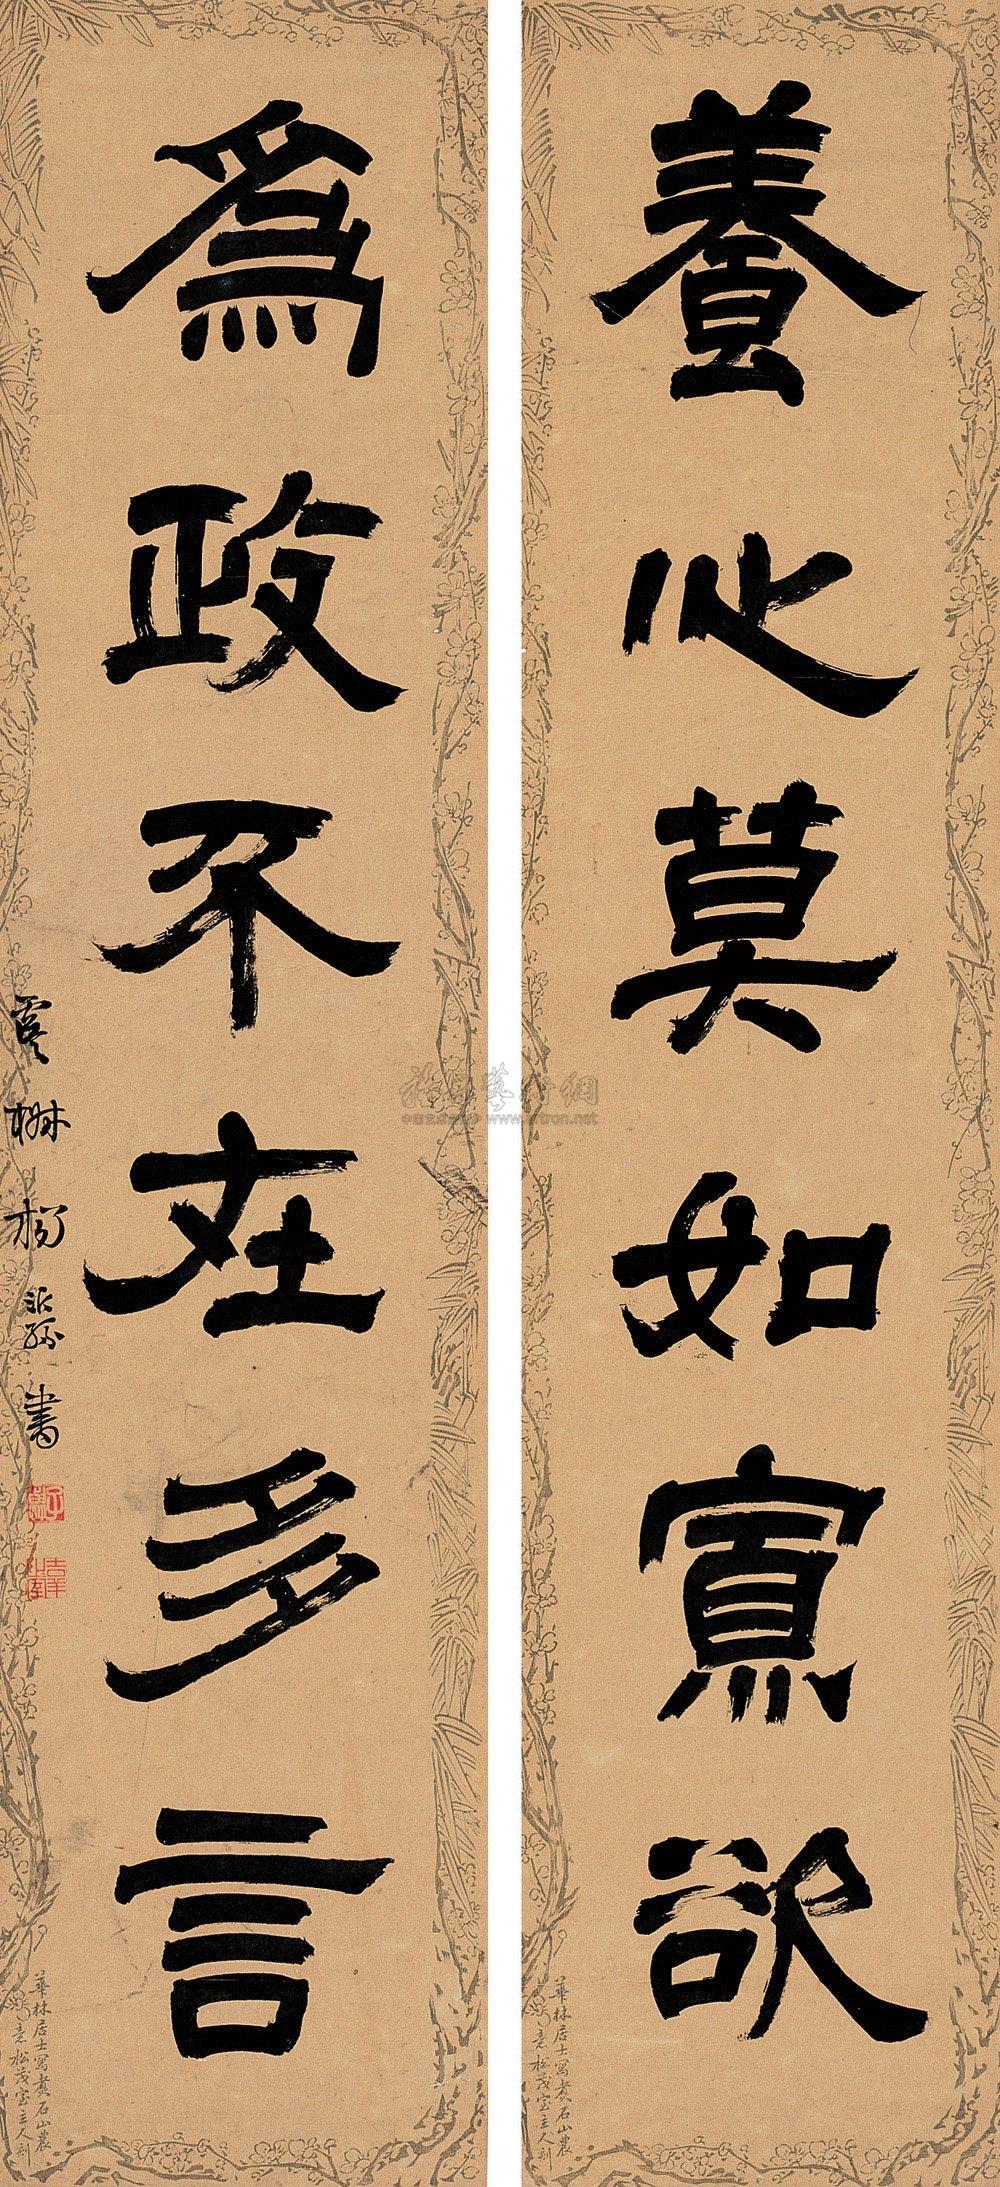 養心莫如寡欲
為政不在多言
虞椒楊沂孫書
華林居士寫煮石山農
意松茂室主人製
華林居士寫煮石山農
意松茂室主人製
www.artron.net